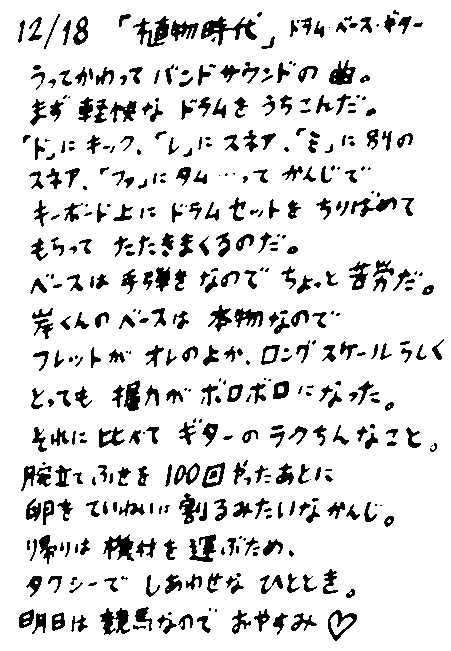 12/18 「植物時代」ドラム・ベース・ギター
うってかわってバンドサウンドの曲。
まず軽快なドラムをうちこんだ。
「ド」にキック、「レ」にスネア、「ミ」に別の
スネア、「ファ」にタム…ってかんじで
キーボード上にドラムセットをちりばめて
もらってたたきまくるのだ。
ベースは手弾きなのでちょっと苦労だ。
岸くんのベースは本物なので
フレットがオレのよか、ロングスケールらしく
とっても握力がボロボロになった。
それに比べてギターのラクちんなこと。
腕立てふせを100回やったあとに
卵をていねいに割るみたいなかんじ。
帰りは機材を運ぶため、
タクシーでしあわせなひととき。
明日は競馬なのでおやすみ♡